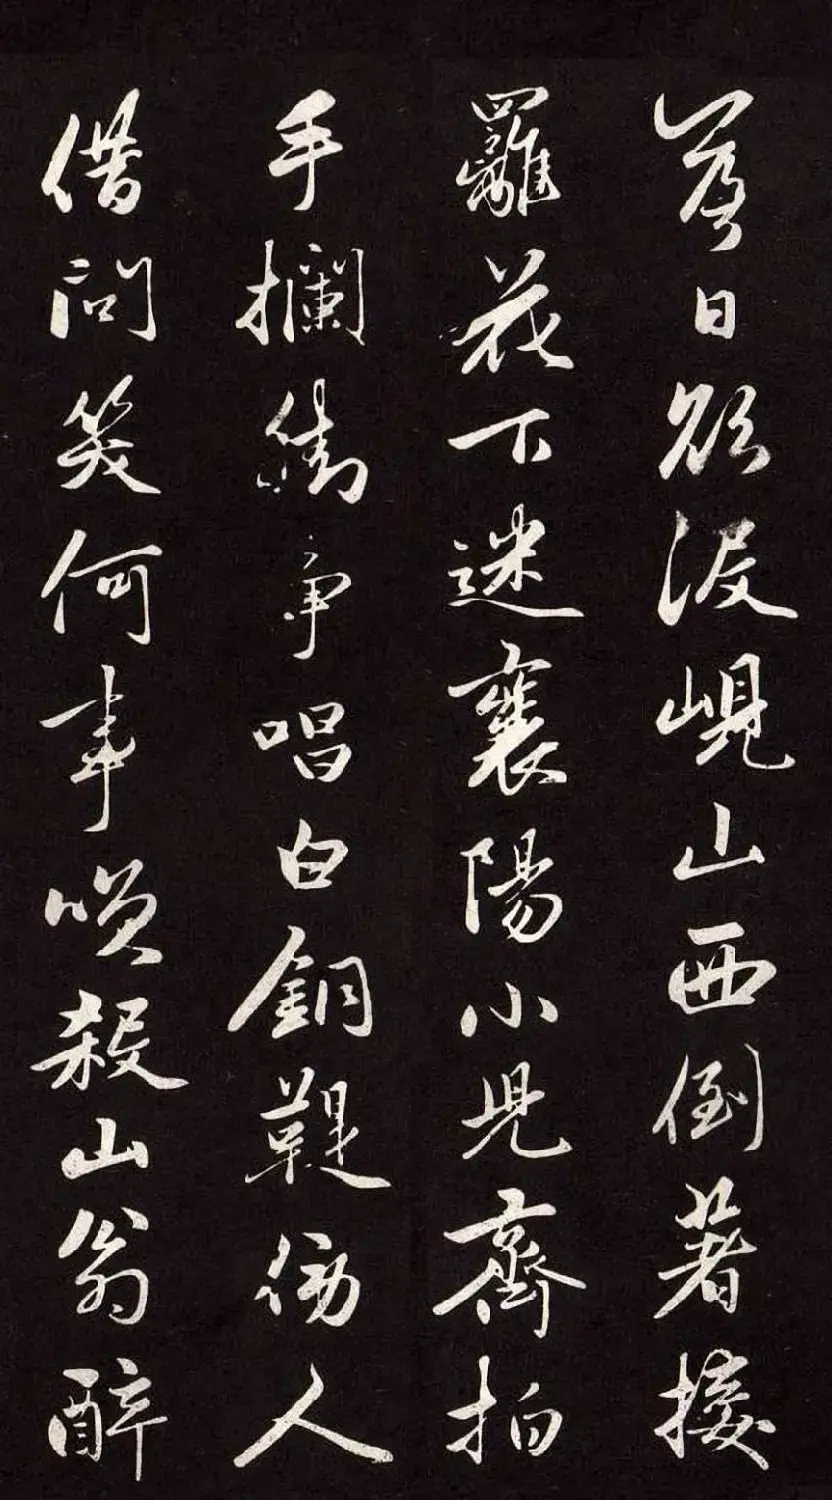 落日欲没峴山西倒著接
䍦花下迷襄陽小兒齊拍
手攔街爭唱白銅鞮傍人
借問笑何事咲殺山翁醉